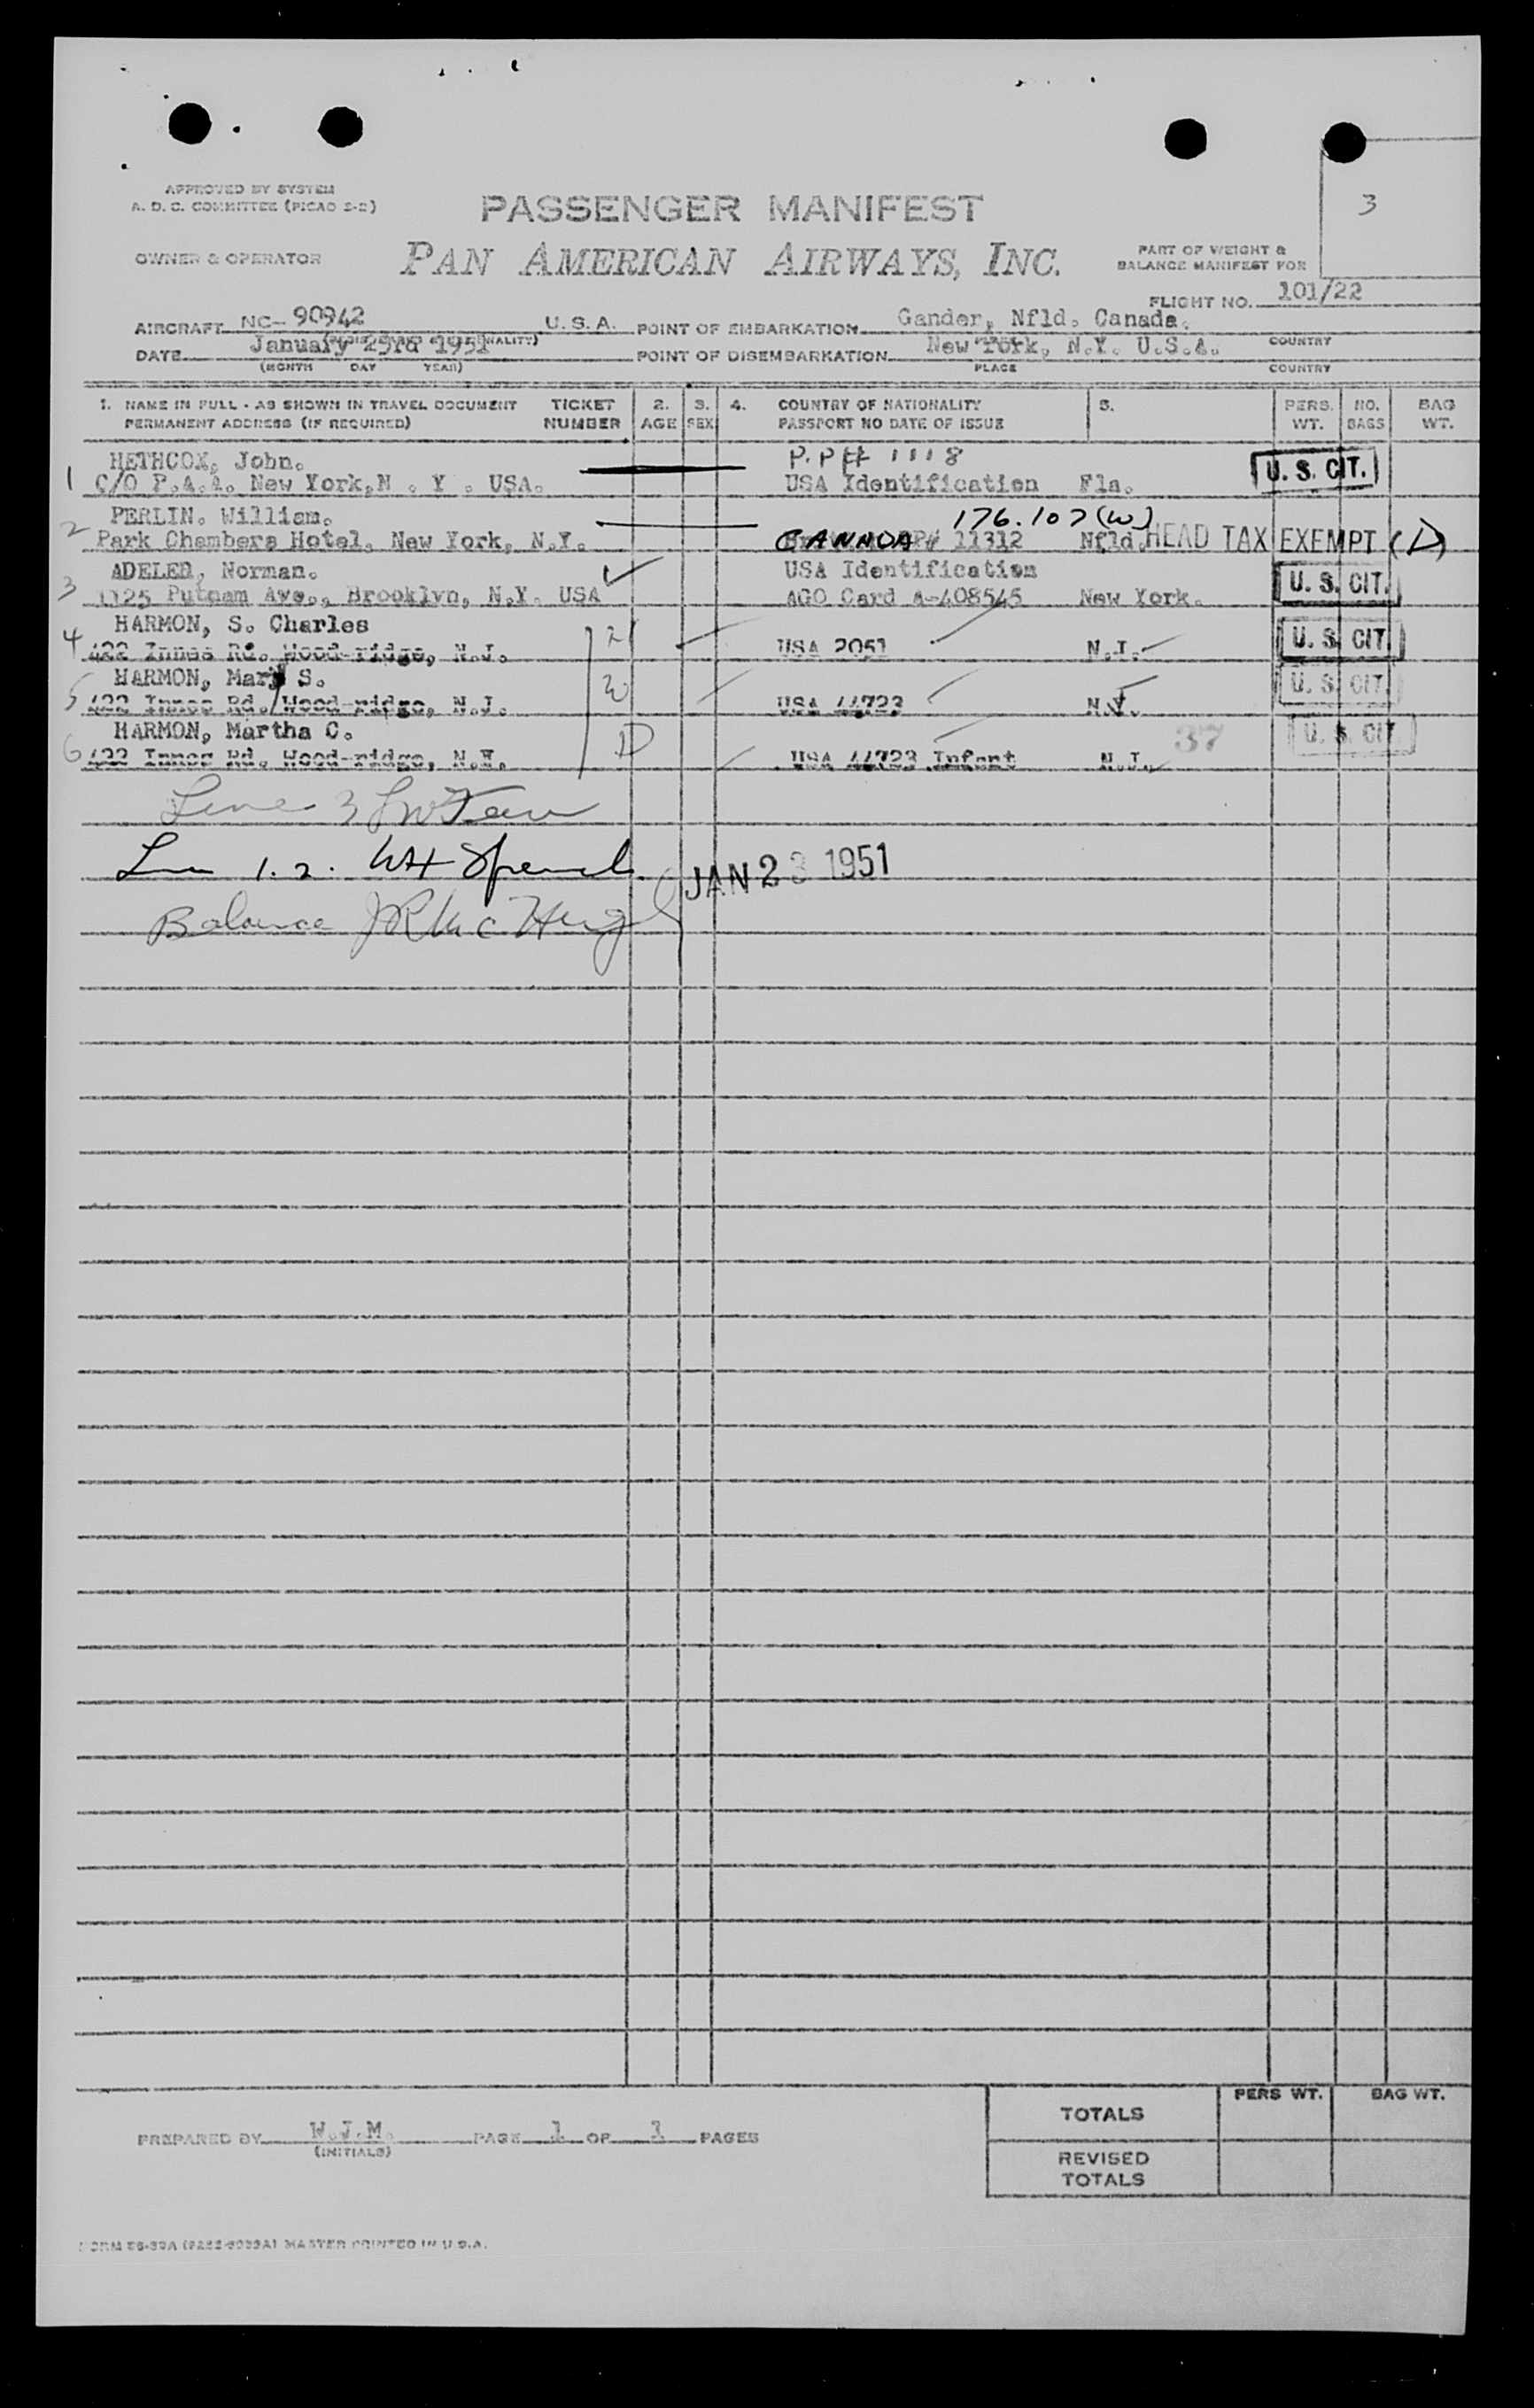 3
APPROVED BY SYSTEM
A. D. C. COMMITTEE (PICAO 2-2)
PASSENGER MANIFEST
OWNER & OPERATOR
PAN AMERICAN AIRWAYS, INC.
PART OF WEIGHT &
BALANCE MANIFEST FOR
FLIGHT NO. 101/22
AIRCRAFT NC- 90942 U. S. A. POINT OF EMBARKATION Gander, Nfld. Canada.
DATE January 23rd 1951 POINT OF DISEMBARKATION New York, N.Y. U.S.A. COUNTRY
(MONTH DAY YEAR) PLACE COUNTRY
1. NAME IN FULL - AS SHOWN IN TRAVEL DOCUMENT TICKET 2. 3. 4. COUNTRY OF NATIONALITY 5. PERS. NO. BAG
PERMANENT ADDRESS (IF REQUIRED) NUMBER AGE SEX PASSPORT NO DATE OF ISSUE WT. BAGS WT.
HETHCOX, John. P.P# 1118
1 C/O P.A.A. New York,N . Y . USA. USA Identification Fla. U. S. CIT.
PERLIN. William. 176.107(W)
2 Park Chambers Hotel. New York, N.Y. 11312 Nfld. HEAD TAX EXEMPT (D)
ADELER, Norman. USA Identification
3 1125 Putnam Ave., Brooklyn, N.Y. USA AGO Card A-408545 New York. U. S. CIT.
HARMON, S. Charles
4 422 Innes Rd. Wood-ridge, N.J. USA 2051 N.J. U. S. CIT
HARMON, Mary S.
5 422 Innes Rd. Wood-ridge, N.J. W USA 44723 N.J. U. S. CIT.
HARMON, Martha C. 37
6 422 Innes Rd. Wood-ridge, N.J. D USA 44723 Infant N.J. U. S. CIT
Line 3
1. 2. JAN 23 1951
Balance
PREPARED BY W.J.M. PAGE 1 OF 1 PAGES
(INITIALS)
PERS WT. BAG WT.
TOTALS
REVISED
TOTALS
MASTER PRINTED IN U.S.A.